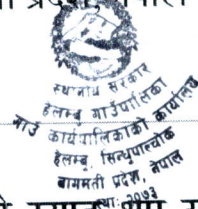 प्रदेश,
स्थानीय सरकार
हेलम्बु गाउँपालिका
गाउँ कार्यपालिकाको कार्यालय
हेलम्बु, सिन्धुपाल्चोक
बागमती प्रदेश, नेपाल
स्था: २०७३